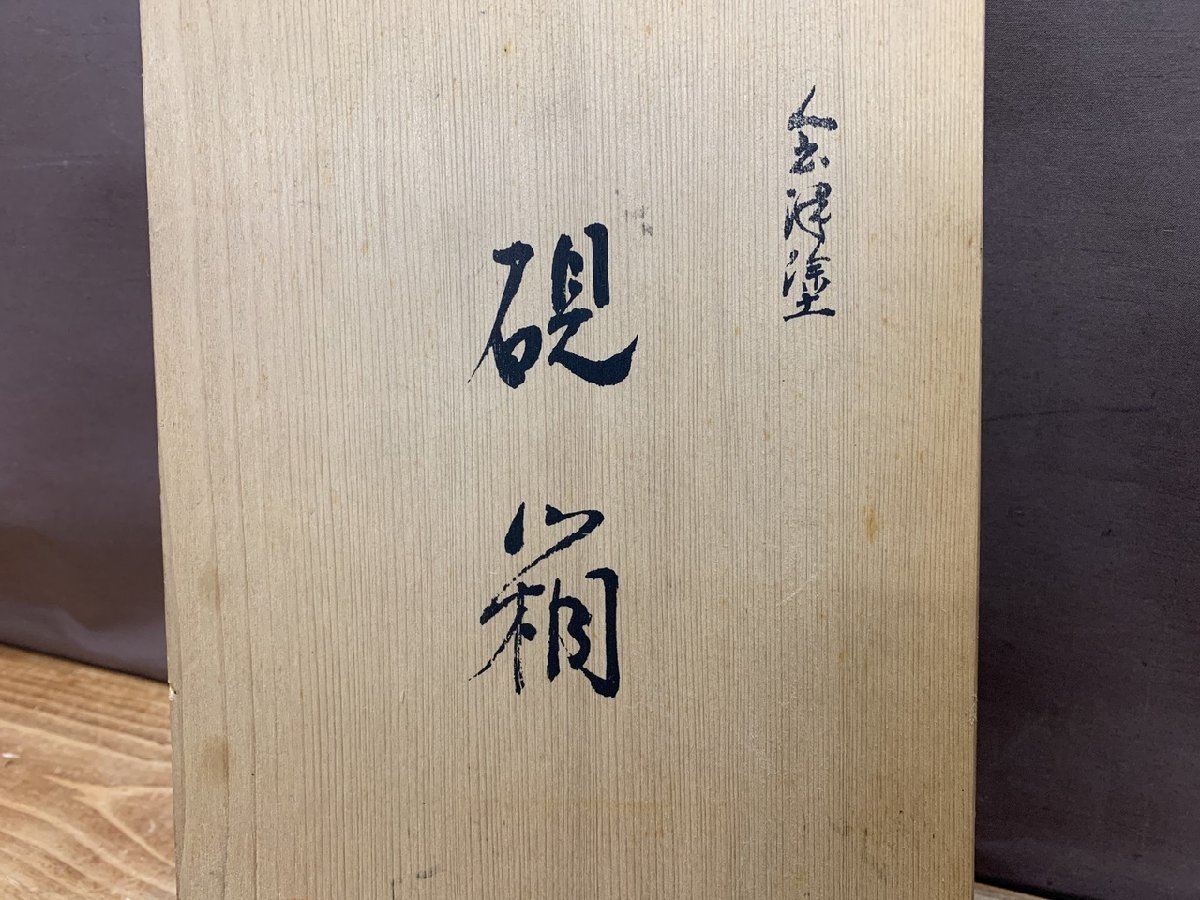 会津塗
硯箱